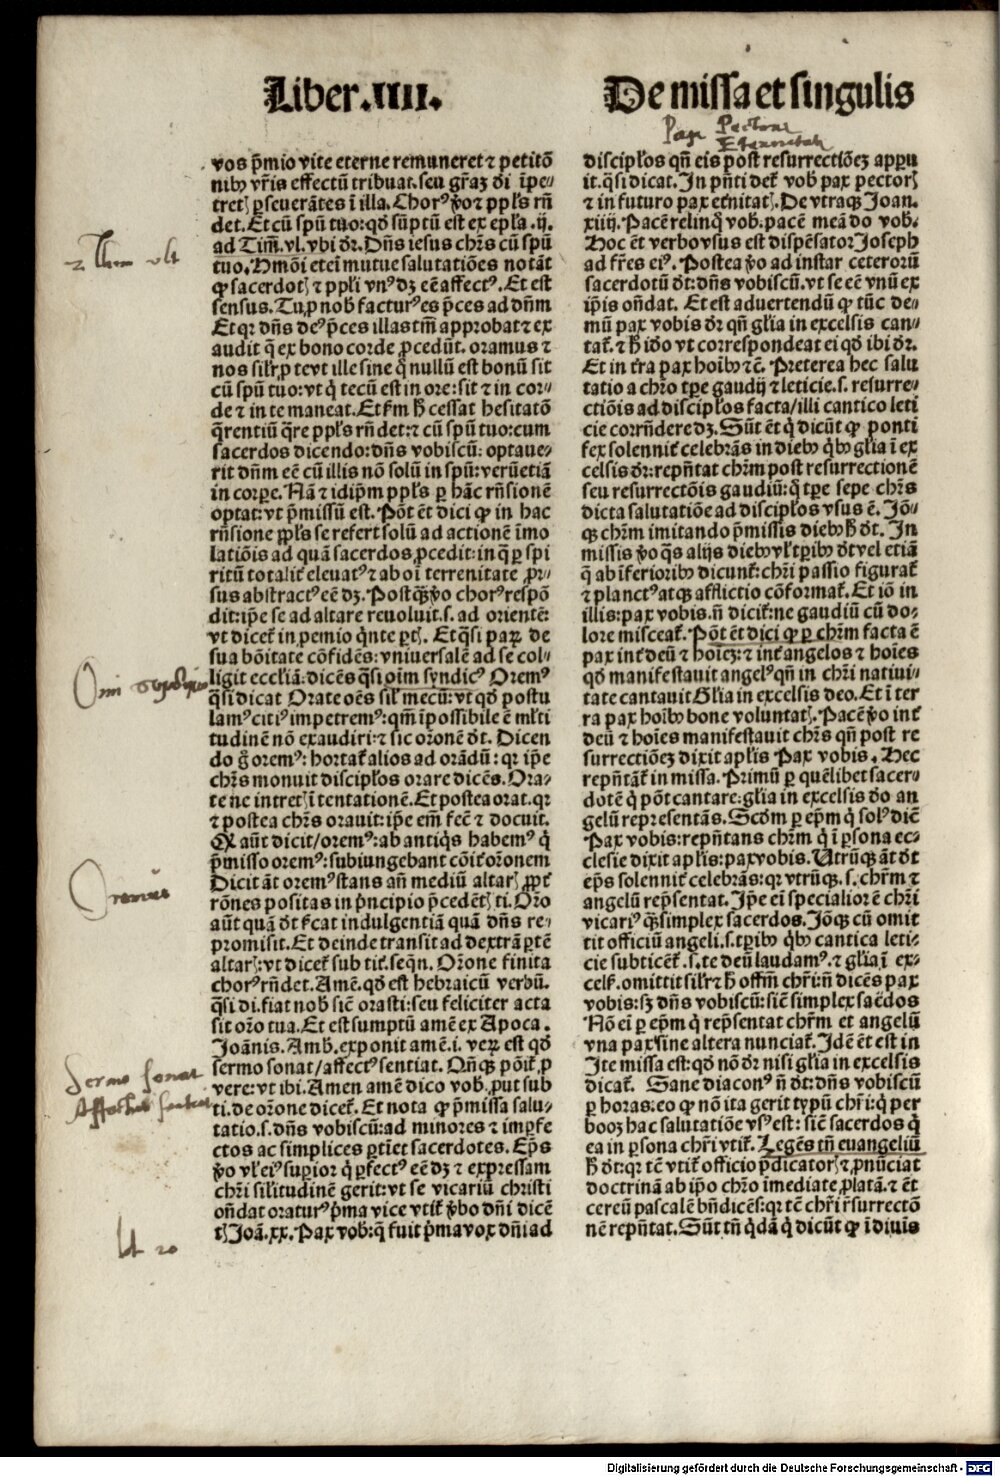 Liber .IIII.
De missa et singulis
Pax Pectoris
Eternitatis
vos p̄mio vite eterne remuneret ⁊ petitō
nibꝫ vr̄is effectū tribuat. seu gr̄aꝫ d̄i īpe⸗
tretꝭ ꝑseverātes ī illa. Chorꝰ v̄o ⁊ ppl̄s rn̄
det. Et cū spū tuo: qd̄ sūptū est ex epl̄a .ij.
ad Tim̄. vl. vbi dr̄. Dn̄s iesus chr̄s cū spū
tuo. Hmōi etei mutue salutatiōes notāt
ꝙ sacerdotꝭ ⁊ ppl̄i vnꝰ dꝫ eē affectꝰ. Et est
sensus. Tu ꝓ nob̄ facturꝰ es p̄ces ad dn̄m
Et qꝛ dn̄s deꝰ p̄ces illas tm̄ approbat ⁊ ex
audit q̄ ex bono corde ꝓcedūt. oramus ⁊
nos silr̄ ꝓ te vt ille sine q̊ nullū est bonū sit
cū spū tuo: vt q̇ tecū est in ore: sit ⁊ in cor⸗
de ⁊ in te maneat. Et ẜm h̄ cessat hesitatō
q̄rentiū q̄re ppl̄s rn̄det: ⁊ cū spū tuo: cum
sacerdos dicendo: dn̄s vobiscū: optaue⸗
rit dn̄m eē cū illis nō solū in spū: verūetiā
in corꝑe. Nā ⁊ idip̄m ppl̄s ꝑ hāc rn̄sionē
optat: vt p̄missū est. Pōt ēt dici ꝙ in hac
rn̄sione ppl̄s se refert solū ad actionē īmo
latiōis ad quā sacerdos ꝓcedit: in q̄ ꝑ spi
ritū totalit̄ eleuatꝰ ⁊ ab oi terrenitate ꝓr⸗
sus abstractꝰ eē dꝫ. Postq̄ꝫ v̄o chorꝰ respō
dit: ip̄e se ad altare reuoluit. s. ad orientē:
vt dicet̄ in ꝓemio q̇nte ꝑtꝭ. Et q̄si paꝝ de
sua bōitate cōfidēs: vniuersalē ad se col⸗
ligit eccl̄iā: dicēs q̄si oīm syndicꝰ Oremꝰ
q̄si dicat Orate oēs sil̄ mecū: vt qd̄ postu
lamꝰ citiꝰ impetremꝰ: qm̄ īpossibile ē ml̄ti
tudinē nō exaudiri: ⁊ sic orōnē d̄t. Dicen
do g̊ oremꝰ: hortat̄ alios ad orādū: qꝛ ip̄e
chr̄s monuit discipl̄os orare dicēs. Ora⸗
te ne intretꝭ ī tentationē. Et postea orat. qꝛ
⁊ postea chr̄s orauit: ip̄e em̄ fec̄ ⁊ docuit.
Qꝛ aūt dicit/oremꝰ: ab antiq̇s habemꝰ q̇
p̄misso oremꝰ: subiungebant cōit̄ orōnem
Dicit āt oremꝰ stans an̄ mediū altarꝭ ꝓpt̄
rōnes positas in p̄ncipio p̄cedētꝭ ti. Orō
aūt quā d̄t ẜcat indulgentiā quā dn̄s re⸗
promisit. Et deinde transit ad dextrā ꝑtē
altarꝭ: vt dicet̄ sub tit̄. seqn̄. Orōne finita
chorꝰ rn̄det. Amē. qd̄ est hebraicū verbū.
q̄si di. fiat nob̄ sic̄ orasti: seu feliciter acta
sit orō tua. Et est sumptū amē ex Apoca.
Joānis. Amb̄. exponit amē. i. veꝝ est qd̄
sermo sonat/affectꝰ sentiat. Qn̄qꝫ pōit̄ ꝓ
vere: vt ibi. Amen amē dico vob̄. put sub
ti. de orōne dicet̄. Et nota ꝙ p̄missa salu⸗
tatio. s. dn̄s vobiscū: ad minores ⁊ imꝑfe
ctos ac simplices ꝑtīet sacerdotes. Ep̄s
v̄o vl̄ eiꝰ suꝑior q̇ ꝑfectꝰ eē dꝫ ⁊ expressam
chr̄i silitudinē gerit: vt se vicariū christi
on̄dat oraturꝰ p̄ma vice vtit̄ v̄bo dn̄i dicē
tꝭ Joā. xx. Pax vob̄: q̄ fuit p̄ma vox dn̄i ad
discipl̄os qn̄ eis post resurrectiōeꝫ apparu
it. q̄si dicat. In pn̄ti det̄ vob̄ pax pectorꝭ
⁊ in futuro pax et̄nitatꝭ. De vtraqꝫ Joan.
xiiij. Pacē relinq̊ vob̄. pacē meā do vob̄.
Hoc ēt verbo vsus est dispēsator Joseph
ad fr̄es eiꝰ. Postea v̄o ad instar ceterorū
sacerdotū d̄t: dn̄s vobiscū. vt se eē vnū ex
ip̄is on̄dat. Et est advertendū ꝙ tūc de⸗
mū pax vobis dr̄ qn̄ gl̄ia in excelsis can⸗
tat̄. ⁊ h̄ id̄o vt correspondeat ei qd̄ ibi dr̄.
Et in t̄ra pax hoībꝫ ⁊c̄. Preterea hec salu
tatio a chr̄o tꝑe gaudij ⁊ leticie. s. resurre⸗
ctiōis ad discipl̄os facta/illi cantico leti
cie corrn̄dere dꝫ. Sūt ēt q̇ dicūt ꝙ ponti
fex solennit̄ celebrās in diebꝫ q̇bꝫ gl̄ia ī ex
celsis dr̄: rep̄ntat chr̄m post resurrectionē
seu resurrectōis gaudiū: q̇ tꝑe sepe chr̄s
dicta salutatiōe ad discipl̄os vsus ē. Jō⸗
qꝫ chr̄m imitando p̄missis diebꝫ h̄ d̄t. In
missis v̄o q̄s alijs diebꝫ vl̄ tꝑibꝫ d̄t vel etiā
q̄ ab īf̄erioribꝫ dicunt̄: chr̄i passio figurat̄
⁊ planctꝰ atqꝫ afflictio cōformat̄. Et iō in
illis: pax vobis. n̄ dicit̄: ne gaudiū cū do⸗
lore misceat̄. Pōt ēt dici ꝙ ꝑ chr̄m facta ē
pax int̄ deū ⁊ hoieꝫ: ⁊ int̄ angelos ⁊ hoies
qd̄ manifestauit angelꝰ qn̄ in chr̄i natiui⸗
tate cantauit Gl̄ia in excelsis deo. Et ī ter
ra pax hoībꝫ bone voluntatꝭ. Pacē v̄o int̄
deū ⁊ hoies manifestauit chr̄s qn̄ post re
surrectiōeꝫ dixit apl̄is Pax vobis. Hec
rep̄ntāt̄ in missa. Primū ꝑ quēlibet sacer⸗
dotē q̇ pōt cantare: gl̄ia in excelsis d̄o an
gelū representās. Scd̄m ꝑ ep̄m q̇ solꝰ dic̄
Pax vobis: rep̄ntans chr̄m q̇ ī ꝑsona ec⸗
clesie dixit apl̄is: pax vobis. Utrūqꝫ āt d̄t
ep̄s solennit̄ celebrās: qꝛ vtrūqꝫ. s. chr̄m ⁊
angelū rep̄sentat. Ip̄e ei specialior ē chr̄i
vicariꝰ q̄ꝫ simplex sacerdos. Jōqꝫ cū omit
tit officiū angeli. s. tꝑibꝫ q̇bꝫ cantica leti⸗
cie subticēt̄. s. te deū laudamꝰ. ⁊ gl̄ia ī ex⸗
celẜ. omittit silr̄ ⁊ h̄ offm̄ chr̄i: n̄ dicēs pax
vobis: sꝫ dn̄s vobiscū: sic̄ simplex sac̄dos
Nō ei ꝑ ep̄m q̇ rep̄sentat chr̄m et angelū
vna pax sine altera nunciat̄. Idē ēt est in
Ite missa est: qd̄ nō dr̄ nisi gl̄ia in excelsis
dicat̄. Sane diaconꝰ n̄ d̄t: dn̄s vobiscū
ꝑ horas: eo ꝙ nō ita gerit typū chr̄i: q̇ per
booꝫ hac salutatiōe vsꝰ est: sic̄ sacerdos q̇
ea in ꝑsona chr̄i vtit̄. Legēs tn̄ euangeliū
h̄ d̄t: qꝛ tc̄ vtit̄ officio p̄dicatorꝭ ⁊ ꝓnūciat
doctrinā ab ip̄o chr̄o īmediate ꝓlatā. ⁊ ēt
cereū pascalē bn̄dicēs: qꝛ tc̄ chr̄i r̄surrectō
nē rep̄ntat. Sūt tn̄ q̇dā q̇ dicūt ꝙ ī diuis
Oremus
Sermo sonat
Affectus sentiat
Digitalisierung gefördert durch die Deutsche Forschungsgemeinschaft - DFG